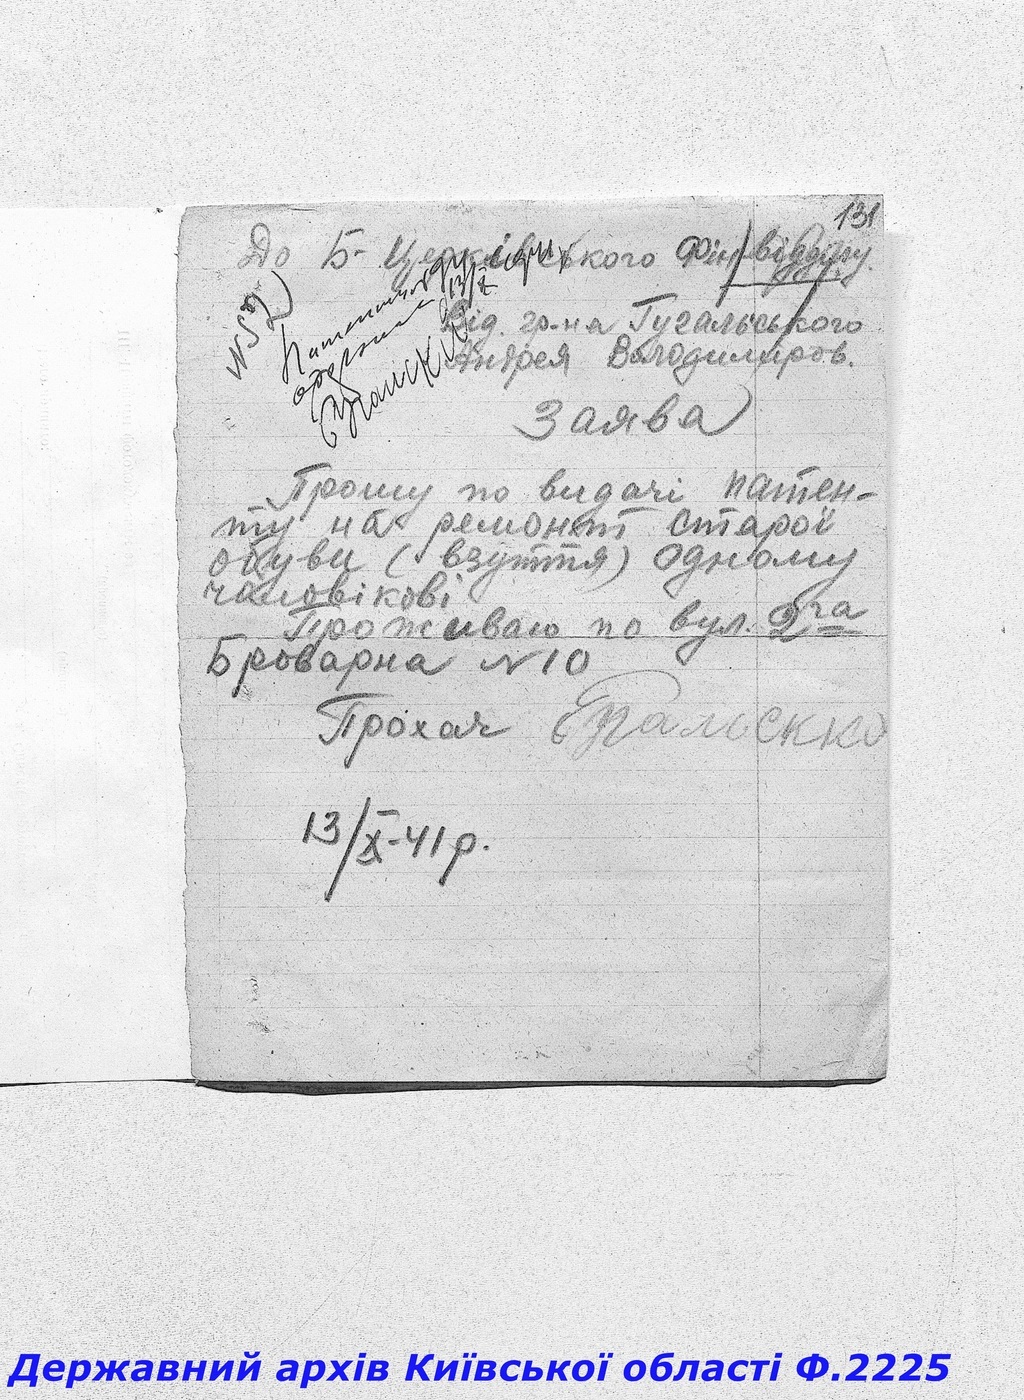 131
До Б-Церківського Фінвідділу.
N52
Від. гр-на Гугальського
Андрея Володимиров.
13/X
Заява
Прошу по видачі патен-
ту на ремонт старої
обуви (взуття) одному
чаловікові
Проживаю по вул. 2га
Броварна N10
Прохач
13/X-41р.
Державний архів Київської області Ф.2225